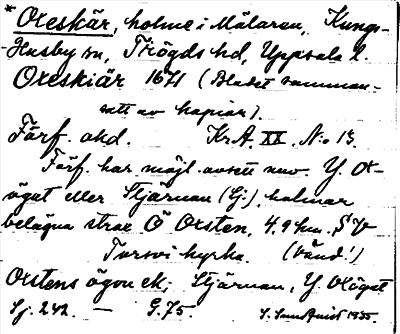 * Oxeskär, holme i Mälaren, Kungs-
Husby sn, Trögds hd, Uppsala l.
Oxeskiär 1671 (Bladet samman-
satt av kopior).
Förf. okd. Kr.A. XX. N:o 13.
Förf. har möjl. avsett nuv. Y. Ox-
ögat eller Stjärnan (Gj.), holmar
belägna strax Ö Oxsten, 4,9 km. SV
Torsvi kyrka. (Vänd!)
Oxstens ögon ek; Stjärnan, Y. Oxögat
Sj. 242. — G. 75. S. Sundquist 1935.